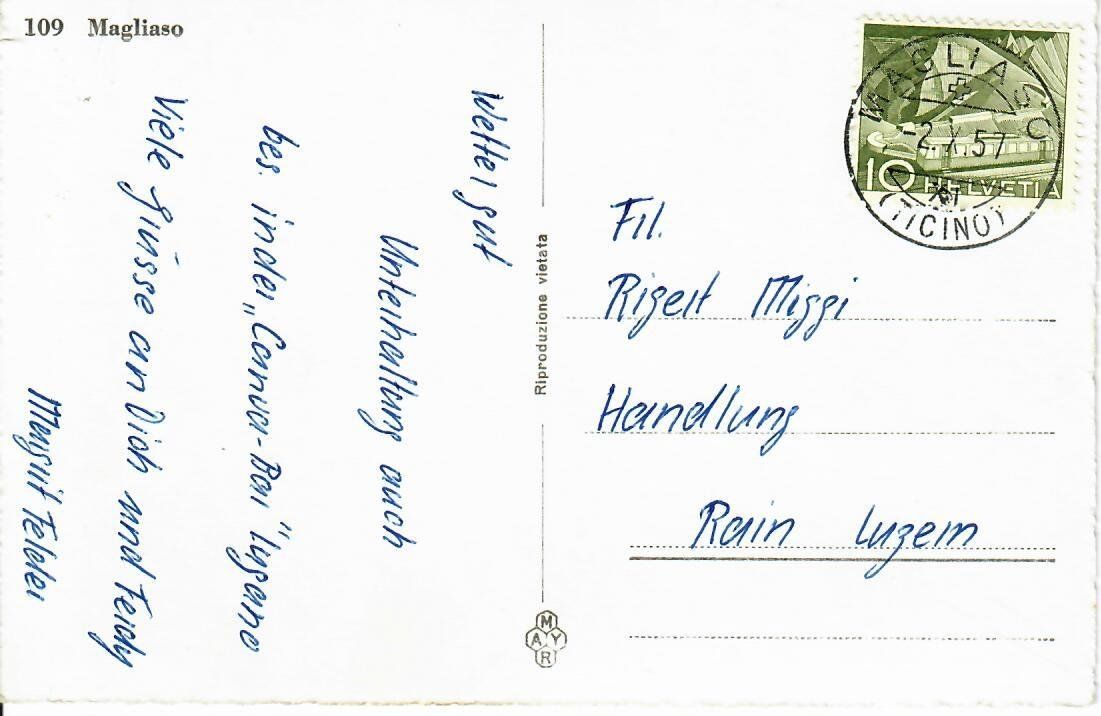 109 Magliaso
Wetter gut
Unterhaltung auch
bes. in der „Canva-Bar" Lugano
Viele Grüsse an Dich und Ferdy
Margrit Felder
Riproduzione vietata
MAYR
MAGLIASO
-2.X.57
(TICINO)
10 HELVETIA
Frl.
Rigert Miggi
Handlung
Rain Luzern